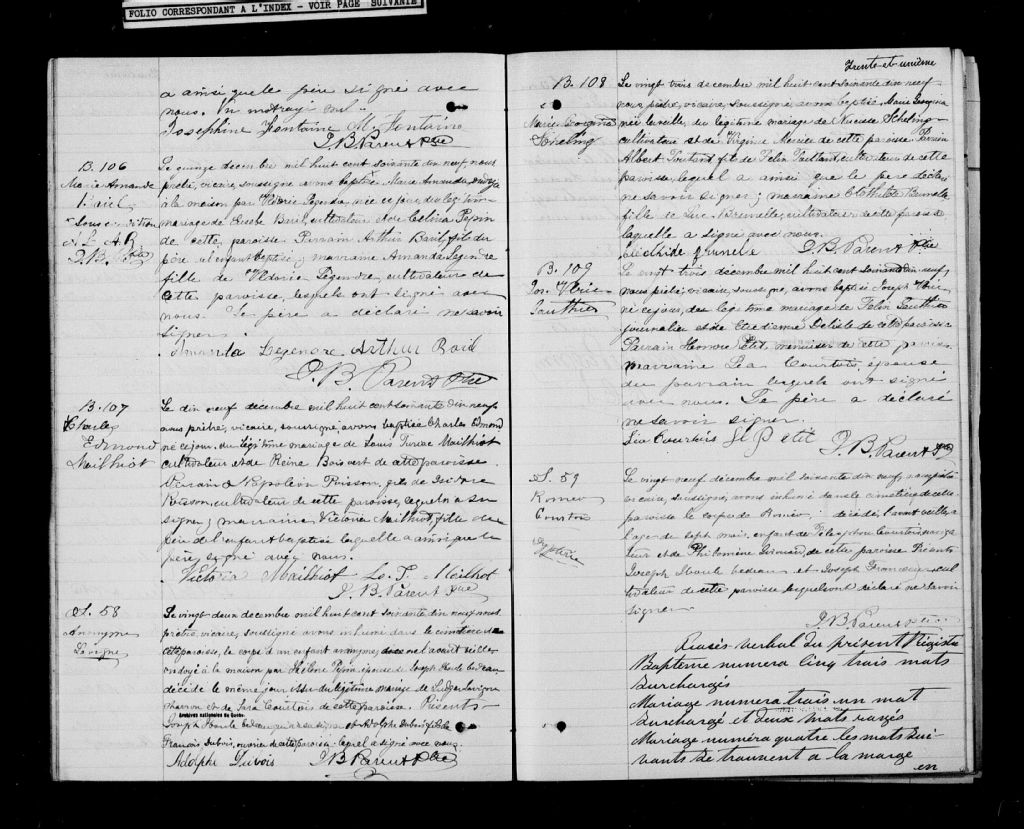 FOLIO CORRESPONDANT A L'INDEX - VOIR PAGE SUIVANTE
a ainsi que le père signé avec
nous. Un mot rayé nul.
Josephine Fontaine M. Fontaine
J. B. Parent Ptre
B. 106
Marie Amanda
Baril
Le quinze décembre mil huit cent soixante dix neuf nous
prêtre, vicaire, soussigné avons baptisé Marie Amanda, ondoyée
à la maison par Eldorie Legendre, née ce jour du légitime
mariage de Eusèbe Baril, cultivateur et de Celina Pepin
de cette paroisse. Parrain Arthur Baril, fils du
père de l'enfant baptisé; marraine Amanda Legendre
fille de Eldorie Legendre, cultivateur de
cette paroisse, lesquels ont signé avec
nous. Le père a déclaré ne savoir
signer.
Amanda Legendre Arthur Baril
J. B. Parent Ptre
B. 107
Charles
Edmond
Mailhiot
Le dix neuf décembre mil huit cent soixante dix neuf
nous prêtre, vicaire, soussigné, avons baptisé Charles Edmond
né ce jour, du légitime mariage de Louis Mailhiot
cultivateur et de Reine Boisvert de cette paroisse.
Parrain Napoléon Poisson, fils de Isidore
Poisson, cultivateur de cette paroisse, lequel n'a su
signer; marraine Victoria Mailhiot, fille du
père de l'enfant baptisé laquelle a ainsi que le
père signé avec nous.
Victoria Mailhiot Ls. T. Mailhot
J. B. Parent Ptre
S. 58
Anonyme
Lavigne
Le vingt deux décembre mil huit cent soixante dix neuf nous
prêtre, vicaire, soussigné avons inhumé dans le cimetière de
cette paroisse, le corps d'un enfant anonyme, né avant veille
ondoyé à la maison par Hélène Pepin épouse de Joseph Houle bedeau
décédé le même jour issu du légitime mariage de Ludger Lavigne
charron et de Sara Courtois de cette paroisse. Présents
Archives nationales du Québec
Joseph Houle bedeau qui n'a su signer et Adolphe Dubois fils de
François Dubois, ouvrier de cette paroisse lequel a signé avec nous.
Adolphe Dubois J B Parent Ptre
Trente-et-unième
B. 108
Marie Georgina
Scheling
Le vingt trois décembre mil huit cent soixante dix neuf
nous prêtre, vicaire, soussigné avons baptisé Marie Georgina
née la veille, du légitime mariage de Scheling
cultivateur et de Virginie Mercier de cette paroisse. Parrain
Albert Taillant, fils de Félix Taillant, cultivateur de cette
paroisse, lequel a ainsi que le père déclaré
ne savoir signer; marraine Clothilde Brunelle
fille de Luc Brunelle, cultivateur de cette paroisse
laquelle a signé avec nous.
J. B. Parent Ptre
B. 109
Jos. Uldéric
Gauthier
Le vingt trois décembre mil huit cent soixante dix neuf,
nous prêtre, vicaire, soussigné, avons baptisé Joseph
né ce jour, du légitime mariage de Félix Gauthier
journalier et de Delisle de cette paroisse
Parrain Honoré Petit menuisier de cette paroisse
marraine Léa Courtois, épouse
du parrain lesquels ont signé
avec nous. Le père a déclaré
ne savoir signer.
Léa Courtois H Petit J. B. Parent Ptre
S. 59
Romeo
Courtois
Le vingt neuf décembre mil soixante dix neuf, nous prêtre
vicaire, soussigné, avons inhumé dans le cimetière de cette
paroisse le corps de Roméo, décédé, l'avant veille, à
l'âge de sept mois, enfant de Télesphore Courtois
et de Philomène Girouard, de cette paroisse Présents
Joseph Houle bedeau et Joseph cul
tivateur de cette paroisse lesquels ont déclaré ne savoir
signer
J B Parent Ptre
Procès verbal du présent Régistre
Baptême numéro cinq trois mots
surchargés
Mariage numéro trois un mot
surchargé et deux mots rayés
Mariage numéro quatre les mots sui-
vants se trouvent a la marge
en